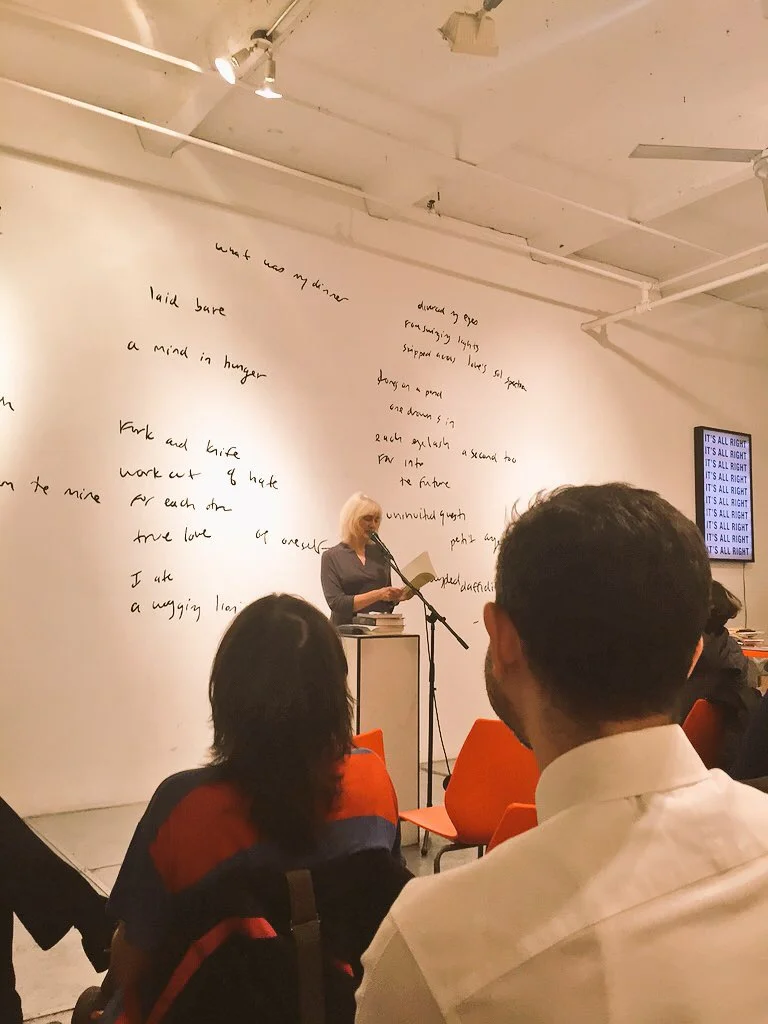 what was my dinner
laid bare
a mind in hunger
Fork and knife
work out of hate
for each other
true love of oneself
I ate
to me mine
divorced my eyes
From swinging lights
across love's
on a pond
one drowns in
each eyelash a second too
Far into
the Future
uninvited guests
daffodil
IT'S ALL RIGHT
IT'S ALL RIGHT
IT'S ALL RIGHT
IT'S ALL RIGHT
IT'S ALL RIGHT
IT'S ALL RIGHT
IT'S ALL RIGHT
IT'S ALL RIGHT
IT'S ALL RIGHT
IT'S ALL RIGHT